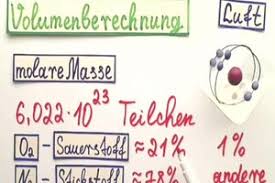 Volumenberechnung Luft
molare Masse
6,022·10²³ Teilchen
O₂ - Sauerstoff ≈ 21% 1%
N₂ - Stickstoff ≈ 78% andere